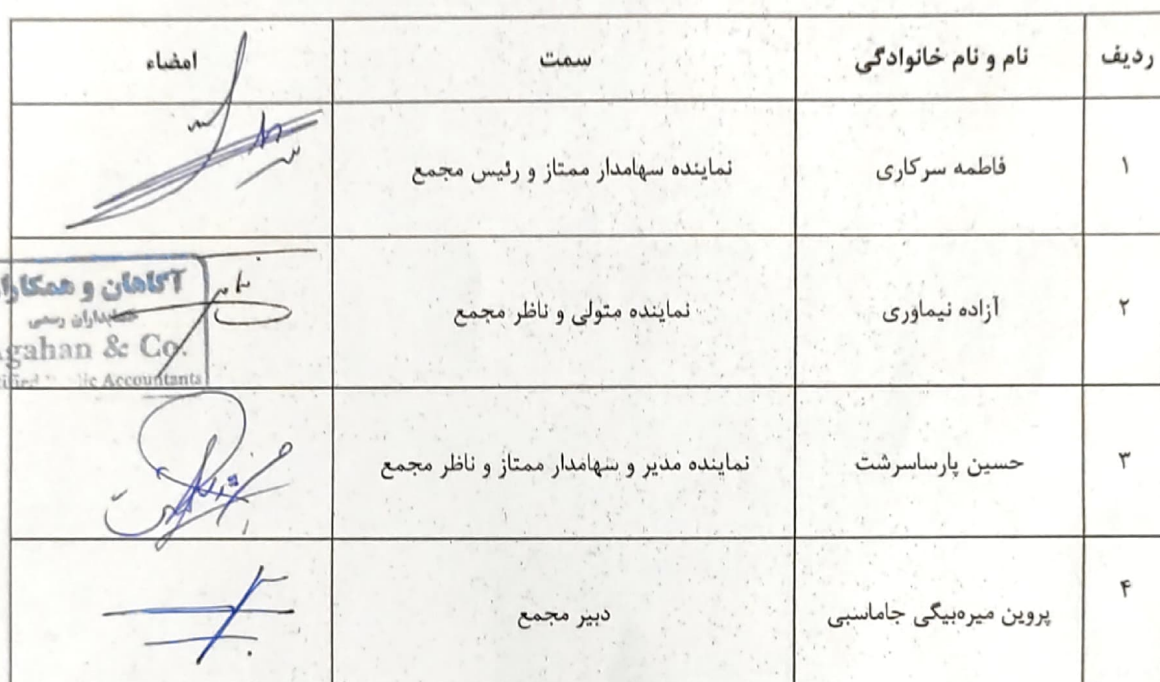 ردیف نام و نام خانوادگی سمت امضاء
۱ فاطمه سرکاری نماینده سهامدار ممتاز و رئیس مجمع
۲ آزاده نیماوری نماینده متولی و ناظر مجمع
آگاهان و همکارا
حسابداران رسمی
Agahan & Co.
Accountants
۳ حسین پارساسرشت نماینده مدیر و سهامدار ممتاز و ناظر مجمع
۴ پروین میره‌بیگی جاماسبی دبیر مجمع